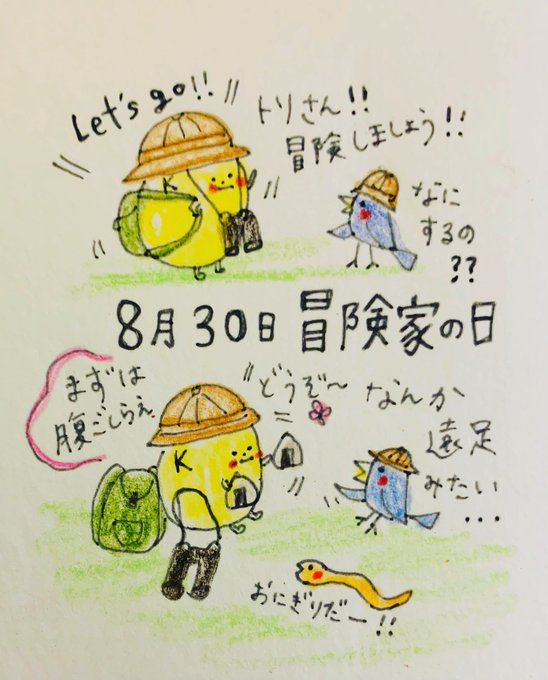 Let's go!!
トリさん!!
冒険しましょう!!
なに
するの
??
K
8月30日 冒険家の日
まずは
腹ごしらえ
どうぞ〜
なんか
遠足
みたい
...
K
おにぎりだー!!